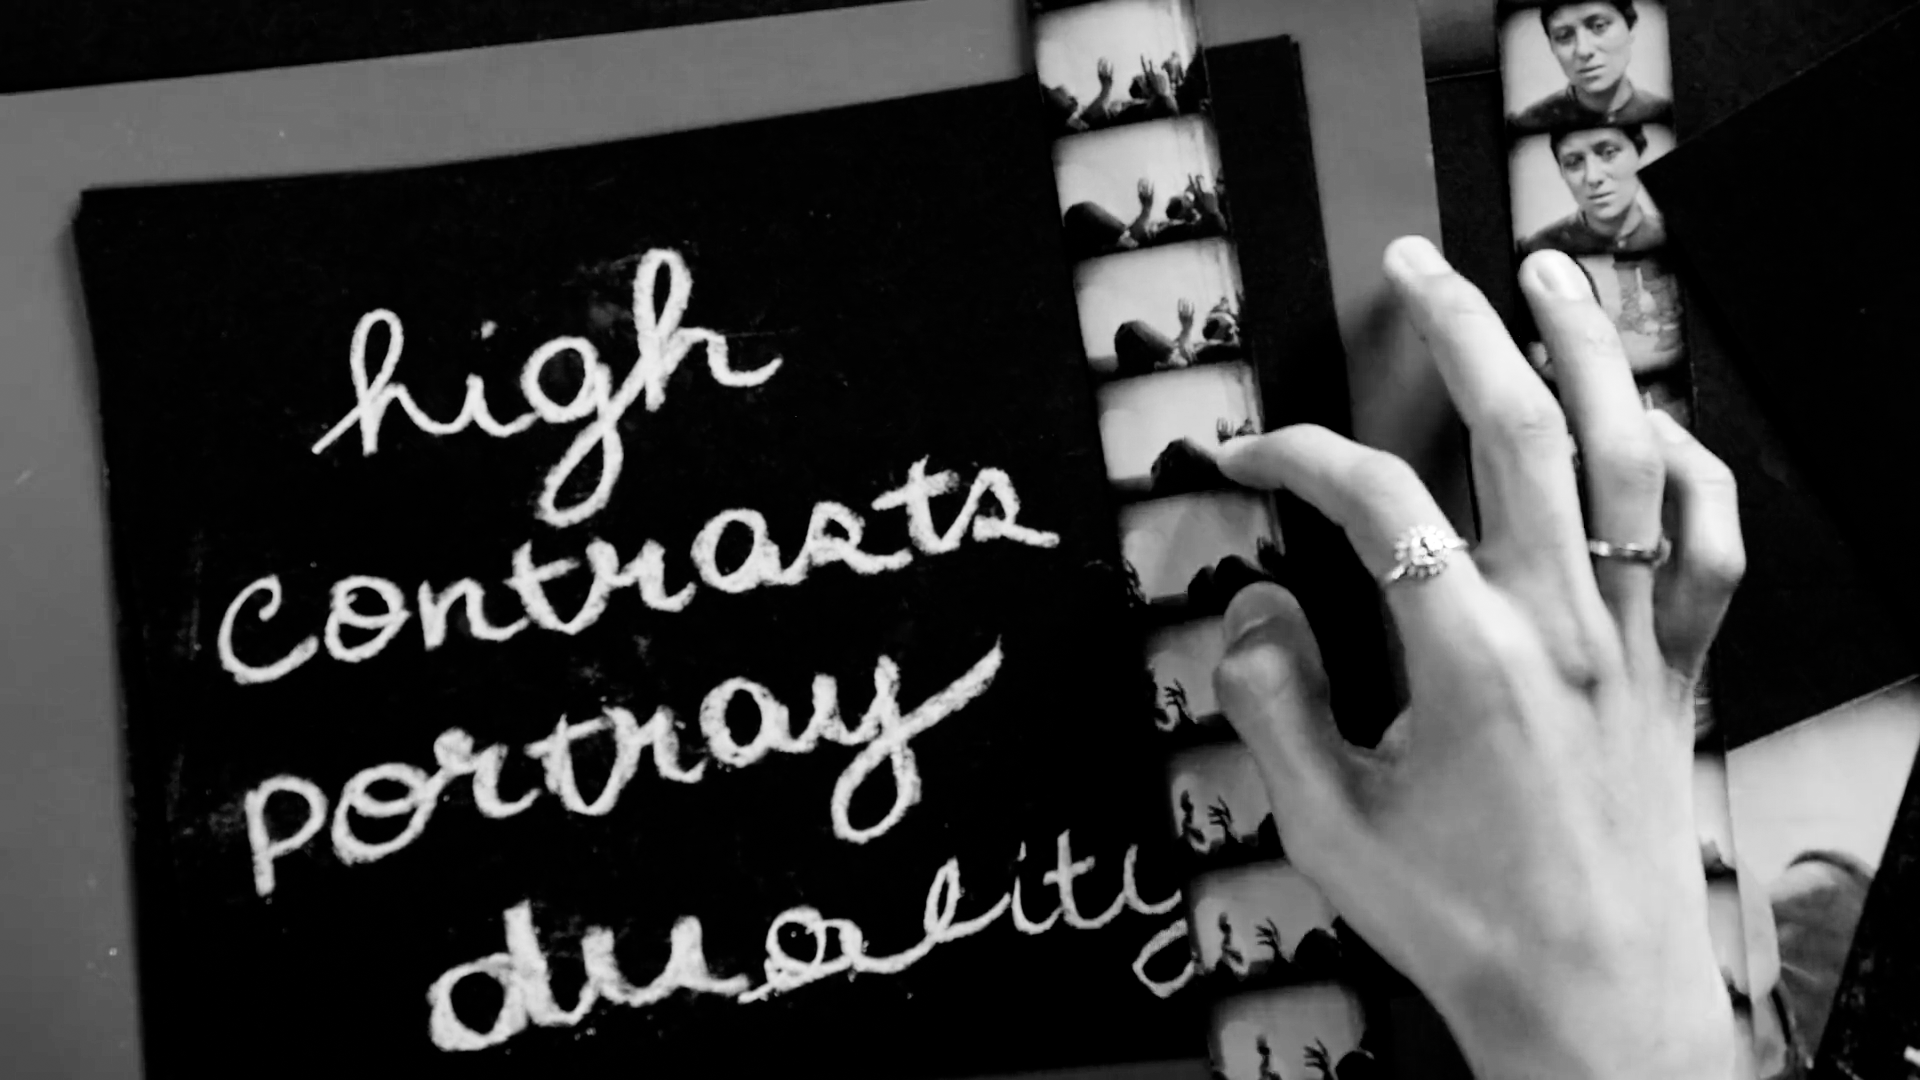 high
contrasts
portray
duality